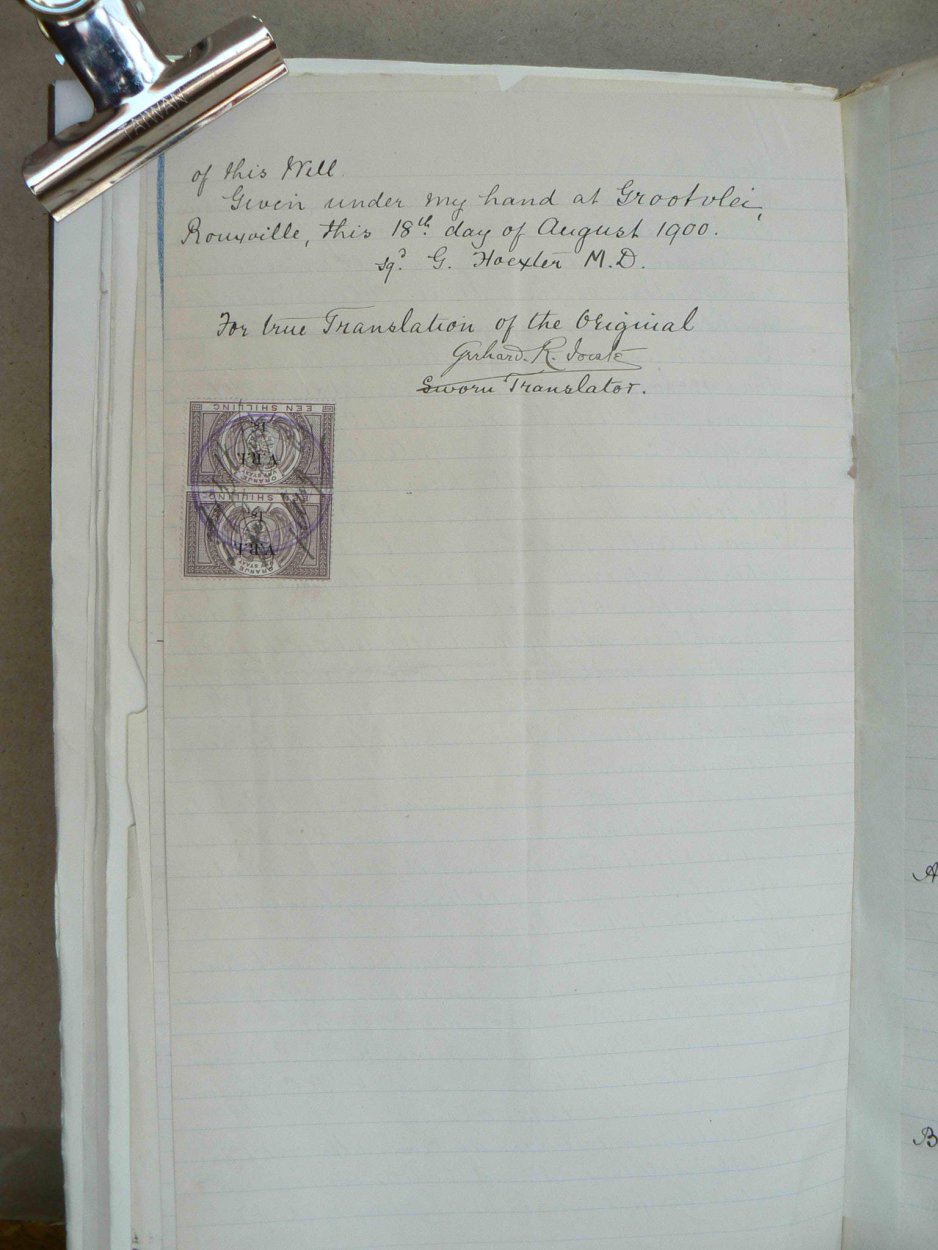 TAIWAN
of this Will.
Given under my hand at Grootvlei,
Rouxville, this 18th day of August 1900.
sgd G. Hoexter M.D.
For true Translation of the Original
Gerhard. R.
Sworn Translator.
EEN SHILLING
1s
V.R.I.
ORANJE
VRY STAAT
EEN SHILLING
1s
V.R.I.
ORANJE
VRY STAAT
A
B